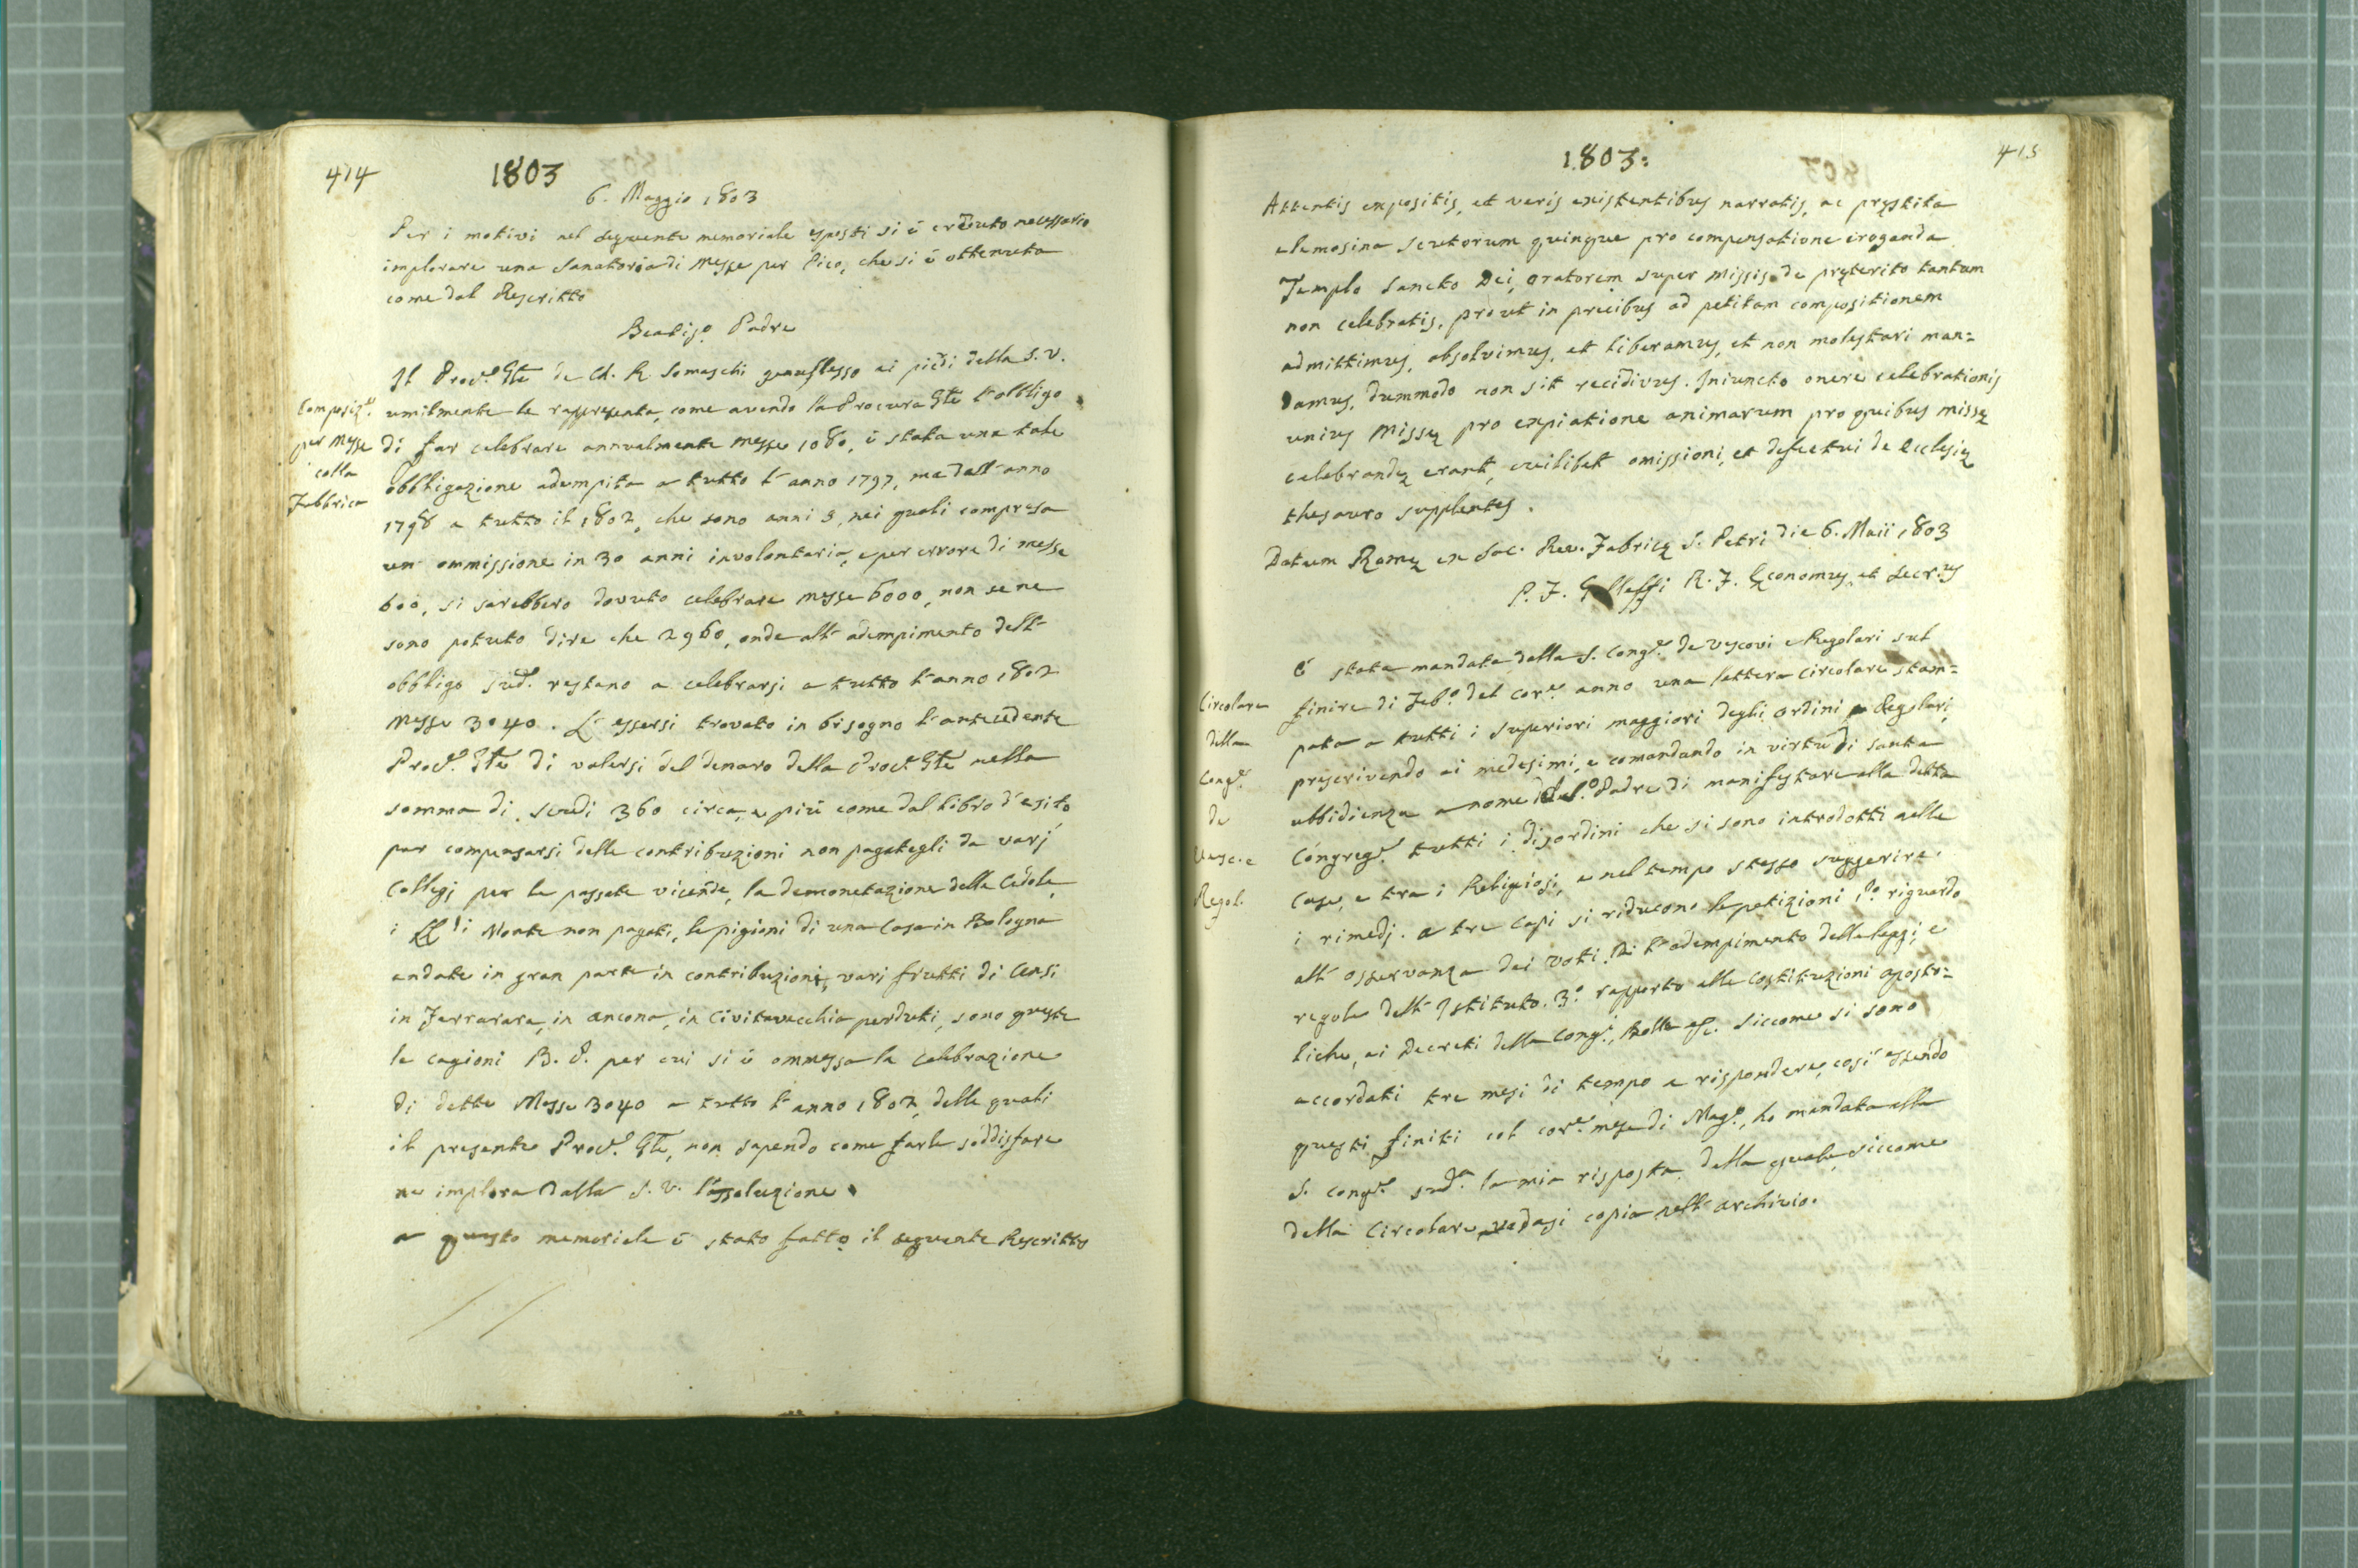 414
1803
6. Maggio 1803
Per i motivi nel seguente memoriale esposti si è creduto necessario
implorare una Sanatoria di Messe per Pico, che si è ottenuta
come dal Rescritto
Beatis.º Padre
Il Proc.e Gle de Ch. R. Somaschi genuflesso ai piedi della S. V.
Composiz.e
per Messe
colla
Fabbrica
umilmente le rappresenta, come avendo la Procura Gle l'obbligo
di far celebrare annualmente Messe 1080, è stata una tale
obbligazione adempita a tutto l'anno 1797, ma dall'anno
1798 a tutto il 1802, che sono anni 5, nei quali compresa
un ommissione in 30 anni involontaria, e per errore di messe
600, si sarebbero dovute celebrare messe 6000, non se ne
sono potute dire che 2960, onde all'adempimento dell'
obbligo sud.º restano a celebrarsi a tutto l'anno 1802
Messe 3040. L'essersi trovato in bisogno l'antecedente
Proc.e Gle di valersi del denaro della Proc.a Gle nella
somma di scudi 360 circa, e più come dal libro d'esito,
per compensarsi delle contribuzioni non pagategli da varj
Collegj per le passate vicende, la demonetazione delle Cedole,
i Monte non pagati, le pigioni di una Casa in Bologna
andate in gran parte in contribuzioni, vari frutti di Censi
in Ferrarara, in Ancona, in Civitavecchia perduti, sono queste
le cagioni B. P. per cui si è ommessa la celebrazione
di dette Messe 3040 a tutto l'anno 1802, delle quali
il presente Proc.e Gle, non sapendo come farle soddisfare
ne implora dalla S. V. l'assoluzione.
A questo memoriale è stato fatto il seguente Rescritto
1803:
415
Attentis expositis, et veris existentibus narratis, ac pręstita
elemosina scutorum quinque pro compensatione eroganda
Templo Sancto Dei, Oratorem super Missis de pręterito tantum
non celebratis, prout in precibus ad petitam compositionem
admittimus, absolvimus, et liberamus, et non molestari man=
damus, dummodo non sit recidivus. Iniuncto onere celebrationis
unius Missę pro expiatione animarum pro quibus missę
celebrandę erant, cuilibet omissioni, et defectui de Ecclesię
thesauro supplentes.
Datum Romę ex Sac. Rev. Fabrica S. Petri die 6. Maii 1803
P. F. Galleffi R. F. Ęconomus, et Secr.us
È stata mandata dalla S. Cong.e de Vescovi e Regolari sul
Circolare
della
Cong.e
de
Vesc. e
Regol.
finire di Feb.º del cor.e anno una lettera circolare stam=
pata a tutti i Superiori maggiori degli Ordini Regolari,
prescrivendo ai medesimi, e comandando in virtù di santa
ubbidienza a nome del S.º Padre di manifestare alla detta
Congreg.e tutti i disordini che si sono introdotti nelle
Case, e tra i Religiosi, e nel tempo stesso suggerire
i rimedj. A tre Capi si riducono le petizioni 1.º riguardo
all'osservanza dei voti. 2.º l'adempimento delle leggi, e
regole dell'Istituto. 3.º rapporto alle Costituzioni aposto=
liche, ai Decreti della Cong.e, Bolle &c. Siccome si sono
accordati tre mesi di tempo a rispondere, così essendo
questi finiti col cor.e mese di Mag.º, ho mandata alla
S. Cong.e sud.a la mia risposta, della quale, siccome
della Circolare, vedasi copia nell'archivio.